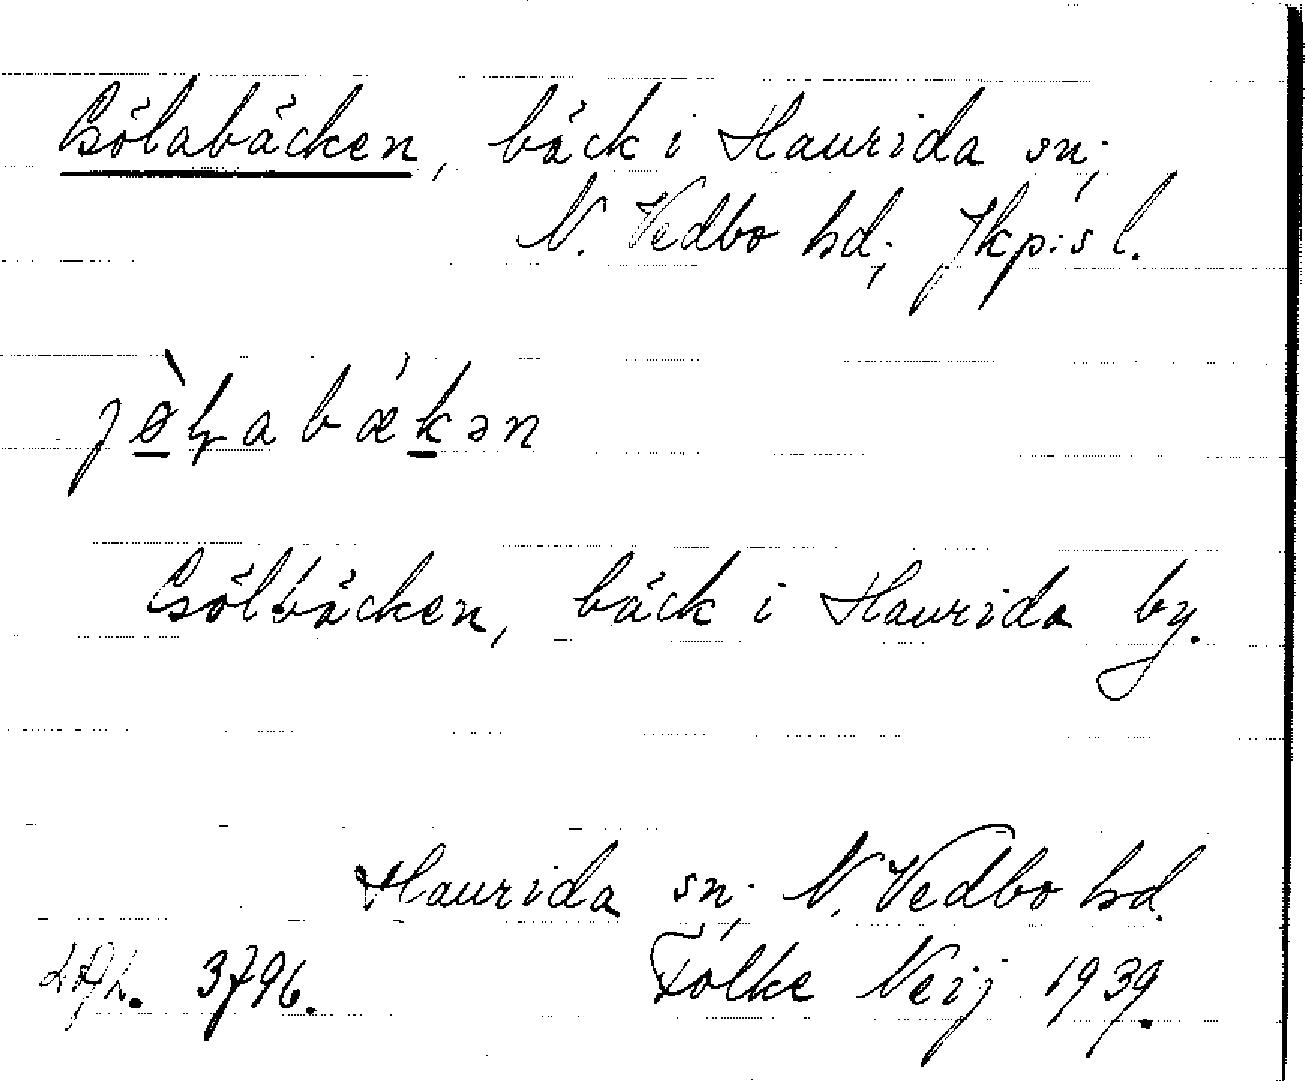 Gölabäcken, bäck i Haurida sn;
N. Vedbo hd; Jkp:s l.
Gölbäcken, bäck i Haurida by.
Haurida sn; N. Vedbo hd.
3796. Folke Neij 1939.